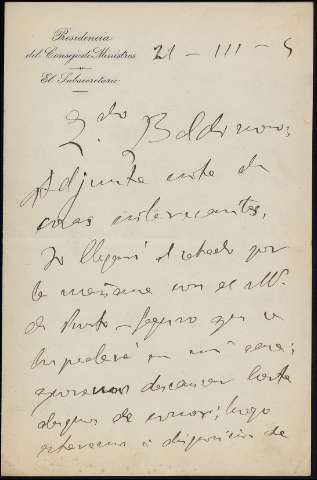 Presidencia
del Consejo de Ministros
El Subsecretario
21 - III - 5
Qdo Baldomero:
Adjunta nota de
cosas interesantes.
Yo llegaré el sábado por
la mañana con el M.
de Puerto-Seguro que se
hospedará en mi casa;
descansar hasta
después de comer; luego
estaremos a disposición de